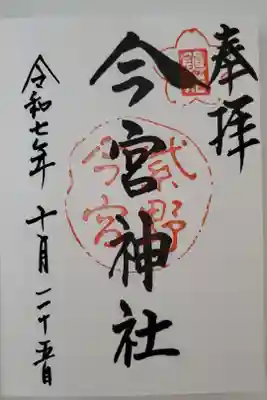 奉拝
今宮神社
武野
今宮
令和七年 十月二十五日